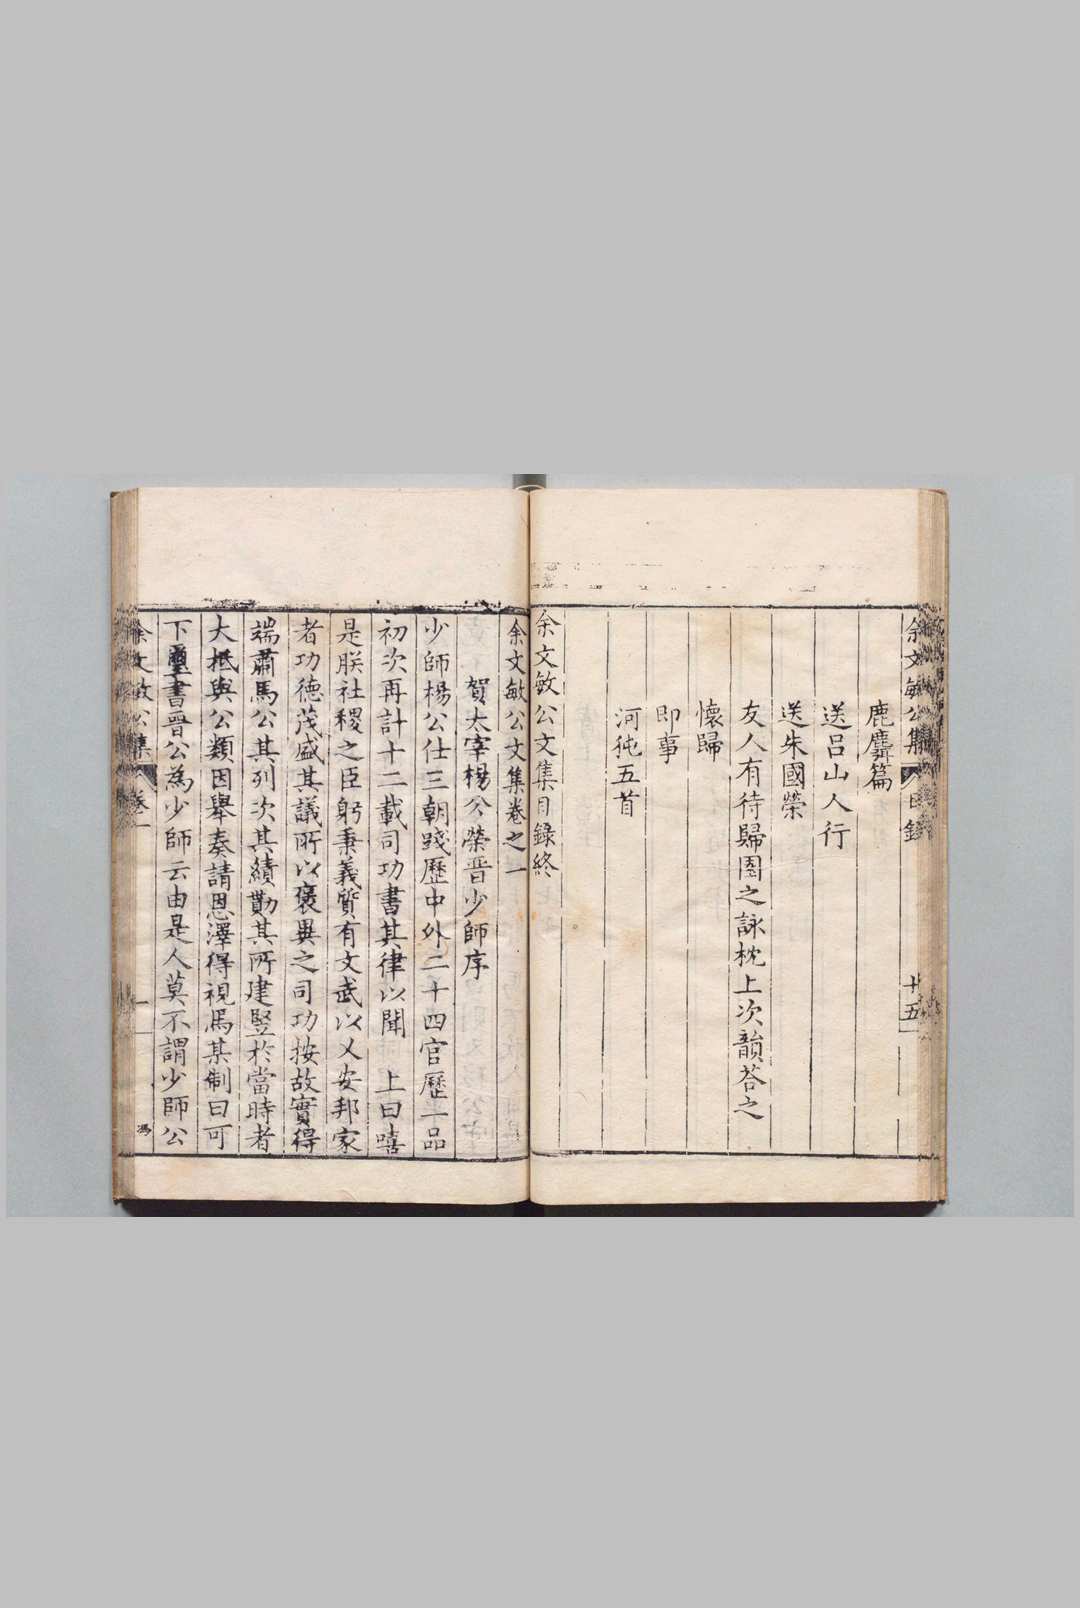 余文敏公集 目錄 廿五
鹿麛篇
送呂山人行
送朱國榮
友人有待歸園之詠枕上次韻荅之
懷歸
即事
河豚五首
余文敏公文集目錄終
余文敏公文集卷之一
賀太宰楊公榮晋少師序
少師楊公仕三朝踐歷中外二十四官歷一品
初次再計十二載司功書其律以聞 上曰嘻
是朕社稷之臣躬秉義質有文武以乂安邦家
者功德茂盛其議所以襃異之司功按故實得
端肅馬公其列次其績勩其所建竪於當時者
大抵與公類因舉奏請恩澤得視焉某制曰可
下璽書晋公為少師云由是人莫不謂少師公
余文敏公集 卷一 一 馮